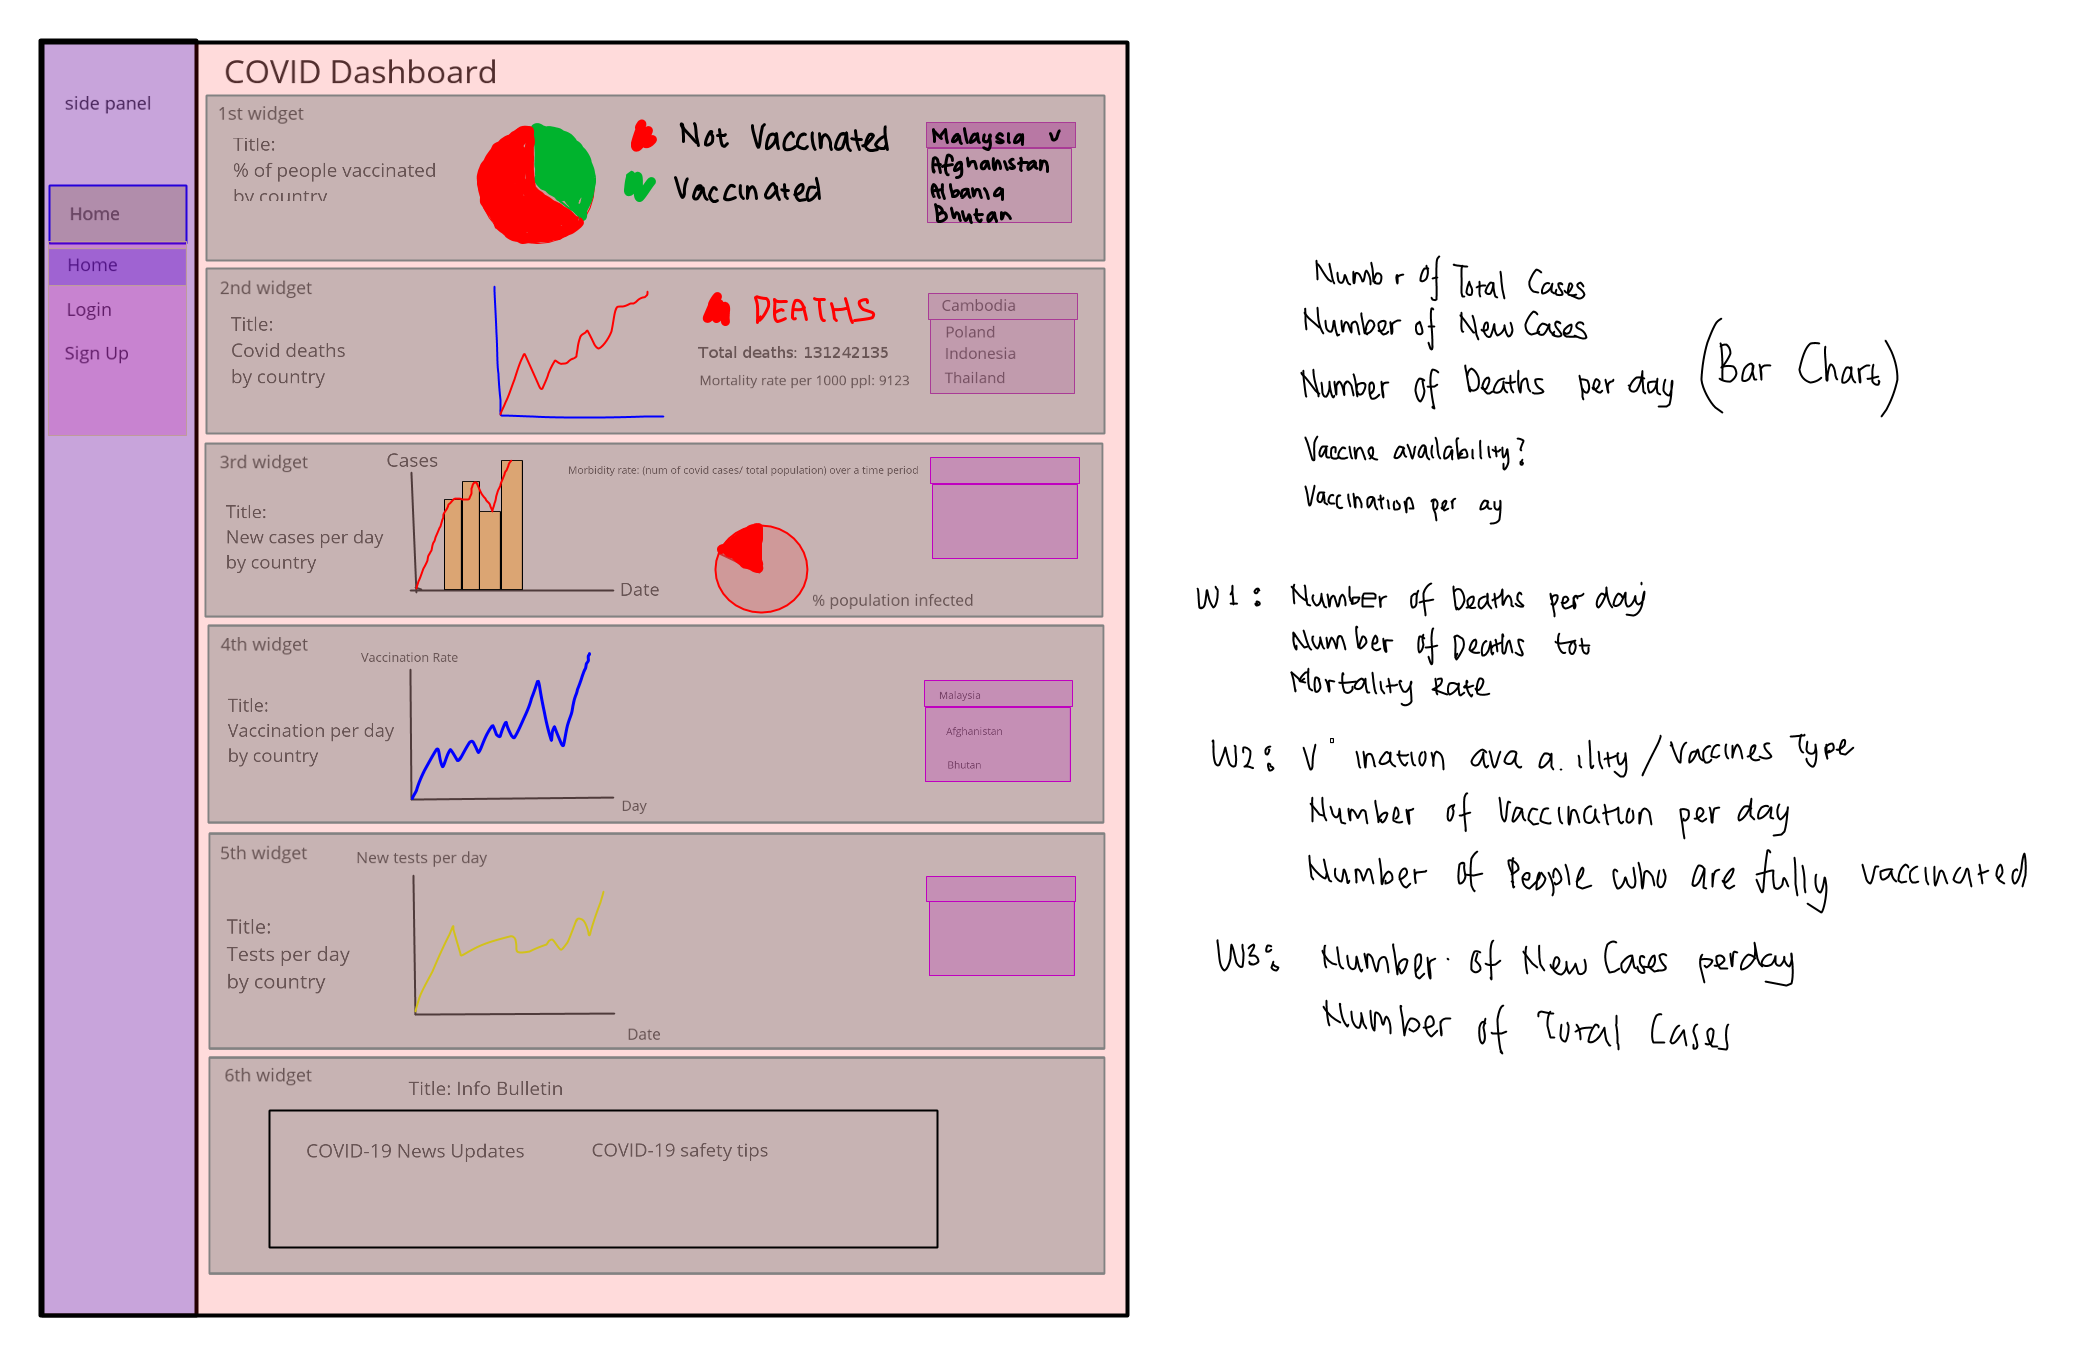 COVID Dashboard
side panel
Home
Home
Login
Sign Up
1st widget
Title:
% of people vaccinated
by country
Not Vaccinated
Vaccinated
Malaysia v
Afghanistan
Albania
Bhutan
2nd widget
Title:
Covid deaths
by country
DEATHS
Total deaths: 131242135
Mortality rate per 1000 ppl: 9123
Cambodia
Poland
Indonesia
Thailand
3rd widget
Title:
New cases per day
by country
Cases
Date
Morbidity rate: (num of covid cases/ total population) over a time period
% population infected
4th widget
Title:
Vaccination per day
by country
Vaccination Rate
Day
Malaysia
Afghanistan
Bhutan
5th widget
Title:
Tests per day
by country
New tests per day
Date
6th widget
Title: Info Bulletin
COVID-19 News Updates
COVID-19 safety tips
Numb r of Total Cases
Number of New Cases
Number of Deaths per day (Bar Chart)
Vaccine availability?
Vaccination per ay
W1: Number of Deaths per day
Number of Deaths tot
Mortality Rate
W2: V ination ava a. ility / Vaccines Type
Number of Vaccination per day
Number of People who are fully vaccinated
W3: Number of New Cases per day
Number of Total Cases